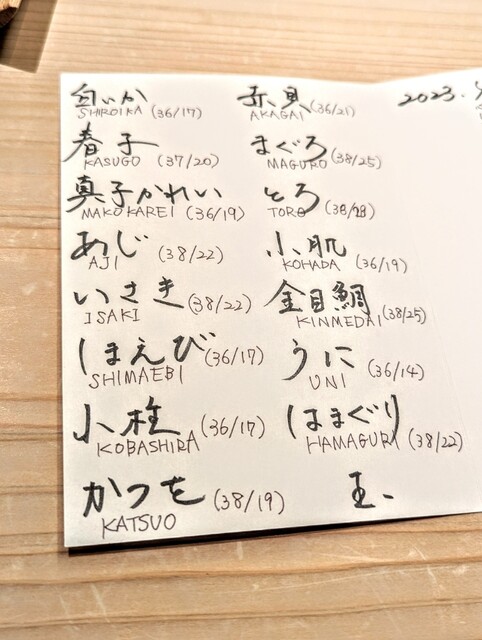 白いか
SHIROIKA (36/17)
春子
KASUGO (37/20)
真子かれい
MAKOKAREI (36/19)
あじ
AJI (38/22)
いさき
ISAKI (38/22)
しまえび
SHIMAEBI (36/17)
小柱
KOBASHIRA (36/17)
かつを
KATSUO (38/19)
赤貝
AKAGAI (36/21)
まぐろ
MAGURO (38/25)
とろ
TORO (38/28)
小肌
KOHADA (36/19)
金目鯛
KINMEDAI (38/25)
うに
UNI (36/14)
はまぐり
HAMAGURI (38/22)
玉
2023.